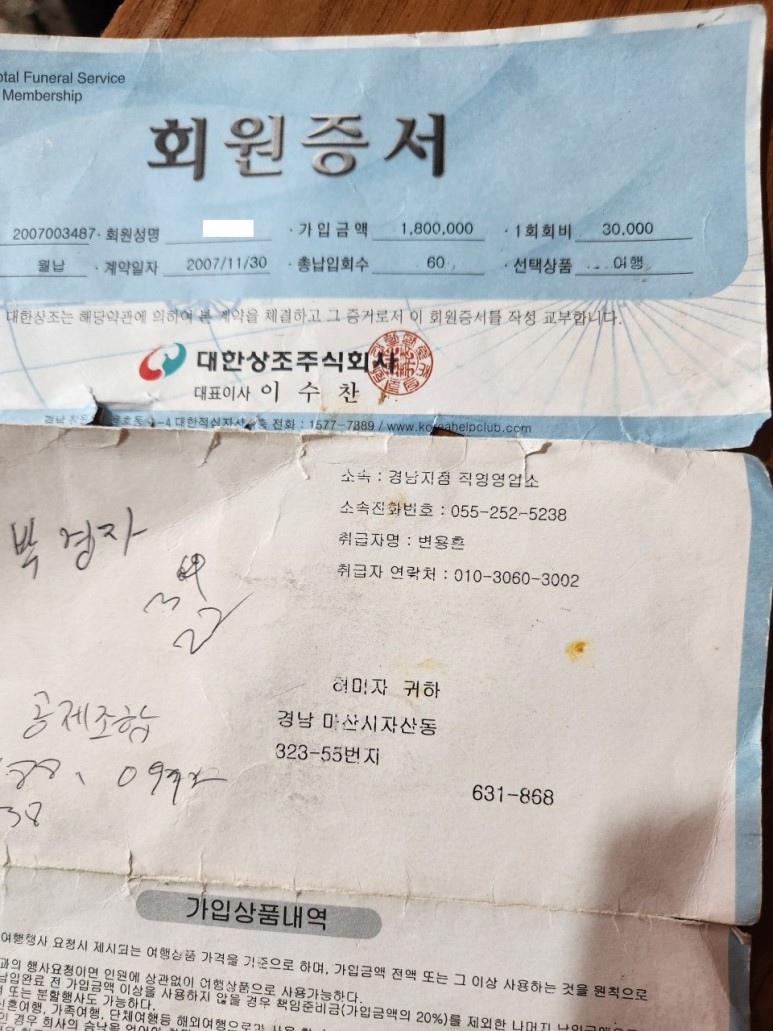 otal Funeral Service
Membership
회원증서
2007003487 · 회원성명 · 가입금액 1,800,000 · 1회회비 30,000
월납 · 계약일자 2007/11/30 · 총납입회수 60 · 선택상품 여행
대한상조는 해당약관에 의하여 본 계약을 체결하고 그 증거로서 이 회원증서를 작성 교부합니다.
대한상조주식회사
대표이사 이 수 찬
경남 -4 대한적십자사 층 전화 : 1577-7889 / www.koreahelpclub.com
소속 : 경남지점 직영영업소
소속전화번호 : 055-252-5238
취급자명 : 변용흔
취급자 연락처 : 010-3060-3002
박경자
허미자 귀하
경남 마산시자산동
323-55번지
631-868
공제조합
38
가입상품내역
여행행사 요청시 제시되는 여행상품 가격을 기준으로 하며, 가입금액 전액 또는 그 이상 사용하는 것을 원칙으로
과의 행사요청이면 인원에 상관없이 여행상품으로 사용가능하다.
납입완료 전 가입금액 이상을 사용하지 않을 경우 책임준비금(가입금액의 20%)를 제외한 나머지
또는 분할행사도 가능하다.
신혼여행, 가족여행, 단체여행등 해외여행으로
경우 회사의 승낙을